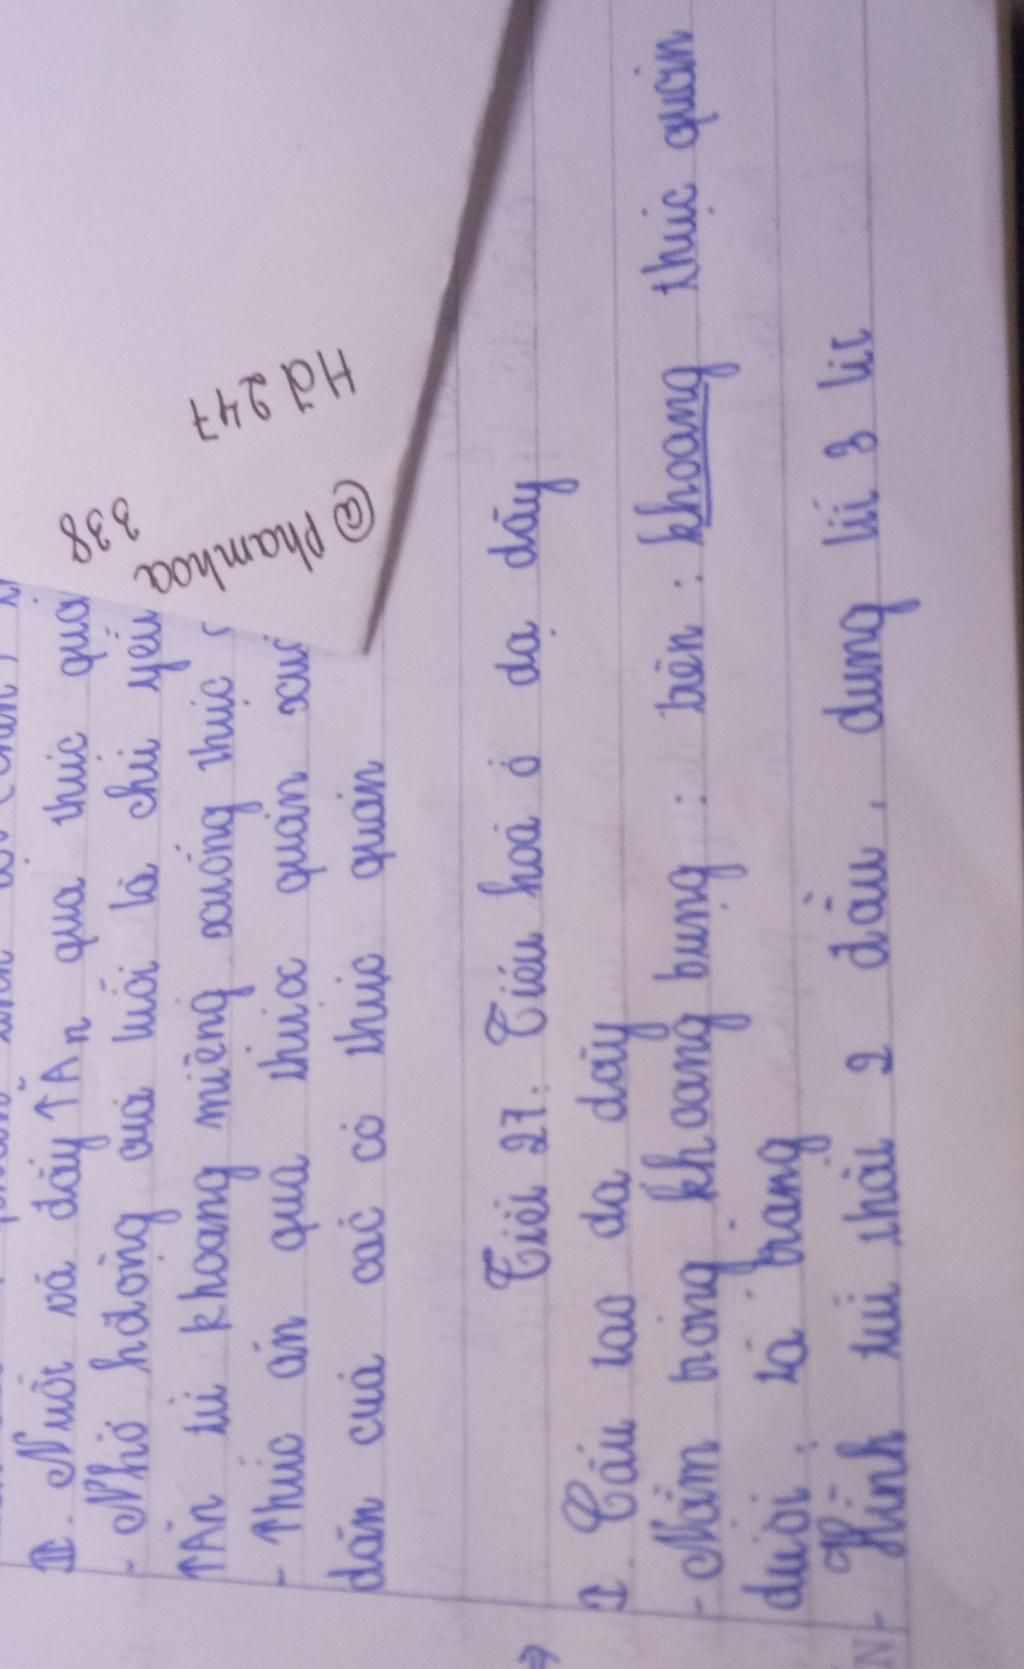 II. Nuốt và đẩy TĂn qua thực quả
- Nhờ hđộng của lưỡi là chủ yếu
TĂn từ khoang miệng xuống thực
- Thức ăn qua thưcc quản xuố
dãn của các cơ thực quản
Tiết 27: Tiêu hoá ở dạ dày
I. Cấu tạo dạ dày
- Nằm trong khoang bụng : trên : khoang thực quản
dưới : tá tràng
- Hình túi thắt 2 đầu, dung tích 3 lít
@phamhoa
338
Hd247